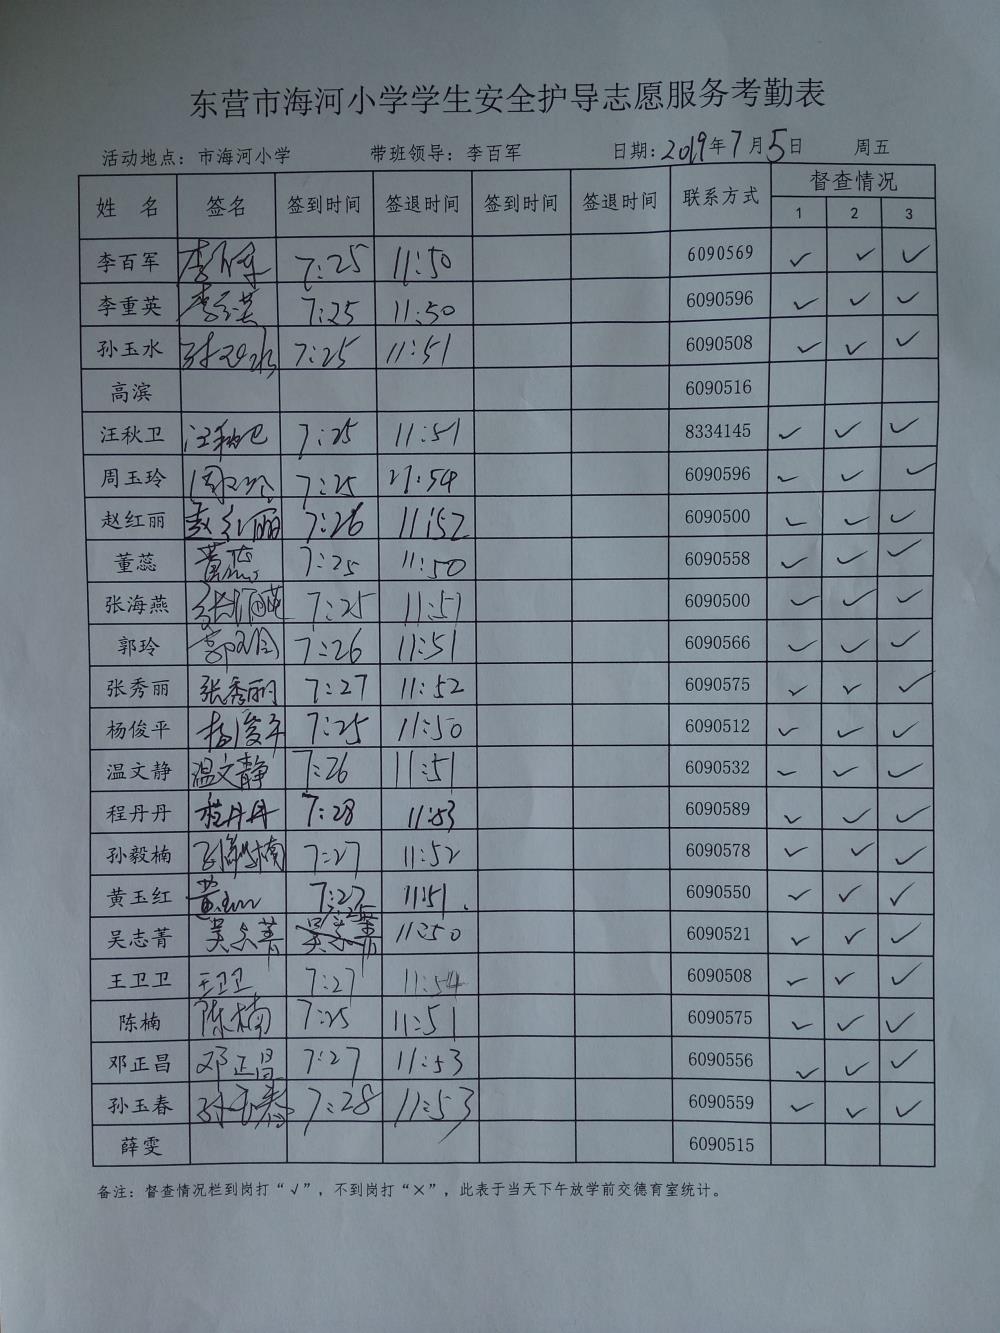 东营市海河小学学生安全护导志愿服务考勤表
活动地点：市海河小学 带班领导：李百军 日期：2019年7月5日 周五
姓 名 签名 签到时间 签退时间 签到时间 签退时间 联系方式 督查情况
1 2 3
李百军 李百军 7:25 11:50 6090569 ✓ ✓ ✓
李重英 李重英 7:25 11:50 6090596 ✓ ✓ ✓
孙玉水 孙玉水 7:25 11:51 6090508 ✓ ✓ ✓
高滨 6090516
汪秋卫 汪秋卫 7:25 11:51 8334145 ✓ ✓ ✓
周玉玲 周玉玲 7:25 6090596 ✓ ✓ ✓
赵红丽 赵红丽 7:26 11:52 6090500 ✓ ✓ ✓
董蕊 董蕊 7:25 11:50 6090558 ✓ ✓ ✓
张海燕 张海燕 7:25 11:51 6090500 ✓ ✓ ✓
郭玲 郭玲 7:26 11:51 6090566 ✓ ✓ ✓
张秀丽 张秀丽 7:27 11:52 6090575 ✓ ✓ ✓
杨俊平 杨俊平 7:25 11:50 6090512 ✓ ✓ ✓
温文静 温文静 7:26 11:51 6090532 ✓ ✓ ✓
程丹丹 程丹丹 7:28 11:53 6090589 ✓ ✓ ✓
孙毅楠 孙毅楠 7:27 11:52 6090578 ✓ ✓ ✓
黄玉红 黄玉红 7:27 11:51. 6090550 ✓ ✓ ✓
吴志菁 吴志菁 7:25 11:50 6090521 ✓ ✓ ✓
王卫卫 王卫卫 7:27 11:54 6090508 ✓ ✓ ✓
陈楠 陈楠 7:25 11:51 6090575 ✓ ✓ ✓
邓正昌 邓正昌 7:27 11:53 6090556 ✓ ✓ ✓
孙玉春 孙玉春 7:28 11:53 6090559 ✓ ✓ ✓
薛雯 6090515
备注：督查情况栏到岗打“√”，不到岗打“×”，此表于当天下午放学前交德育室统计。